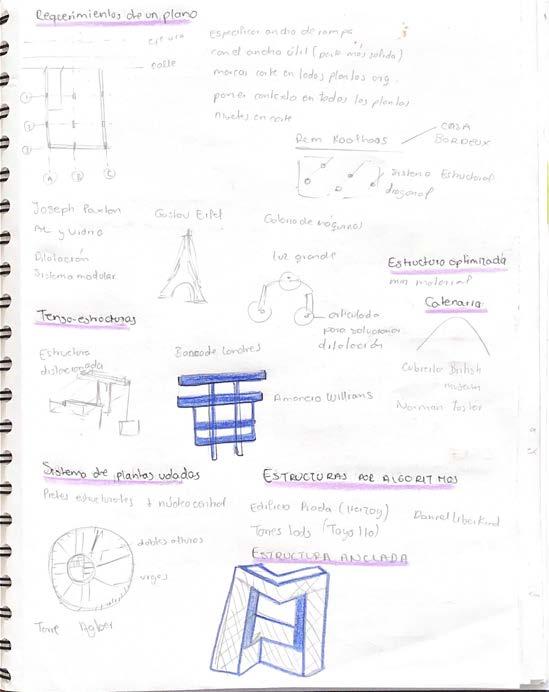 Requerimientos de un plano
Especificar ancho de rampa
con el ancho útil (parte más solida)
calle
marcar corte en todas plantas arq.
poner contexto en todas las plantas
niveles en corte
Rem Koolhaas
CASA
BORDEUX
Sistema Estructural
diagonal
1
2
3
A
B
C
Joseph Paxton
AL y vidrio
Dilatación
Sistema modular
Gustav Eifel
Galeria de máquinas
luz grande
articulada
para solucionar
dilatación
Estructura optimizada
min material
Catenaria
Cubierta British
museum
Norman Foster
Tenso-estructuras
Estructura
dislocada
Banco de Londres
Amancio Williams
Sistema de plantas voladas
Pieles estructurales + núcleo central
dobles alturas
Torre Agbar
ESTRUCTURAS POR ALGORITMOS
Edificio Prada (Herzog)
Daniel Liberkind
Torres Lads (Toyo Ito)
ESTRUCTURA ANCLADA